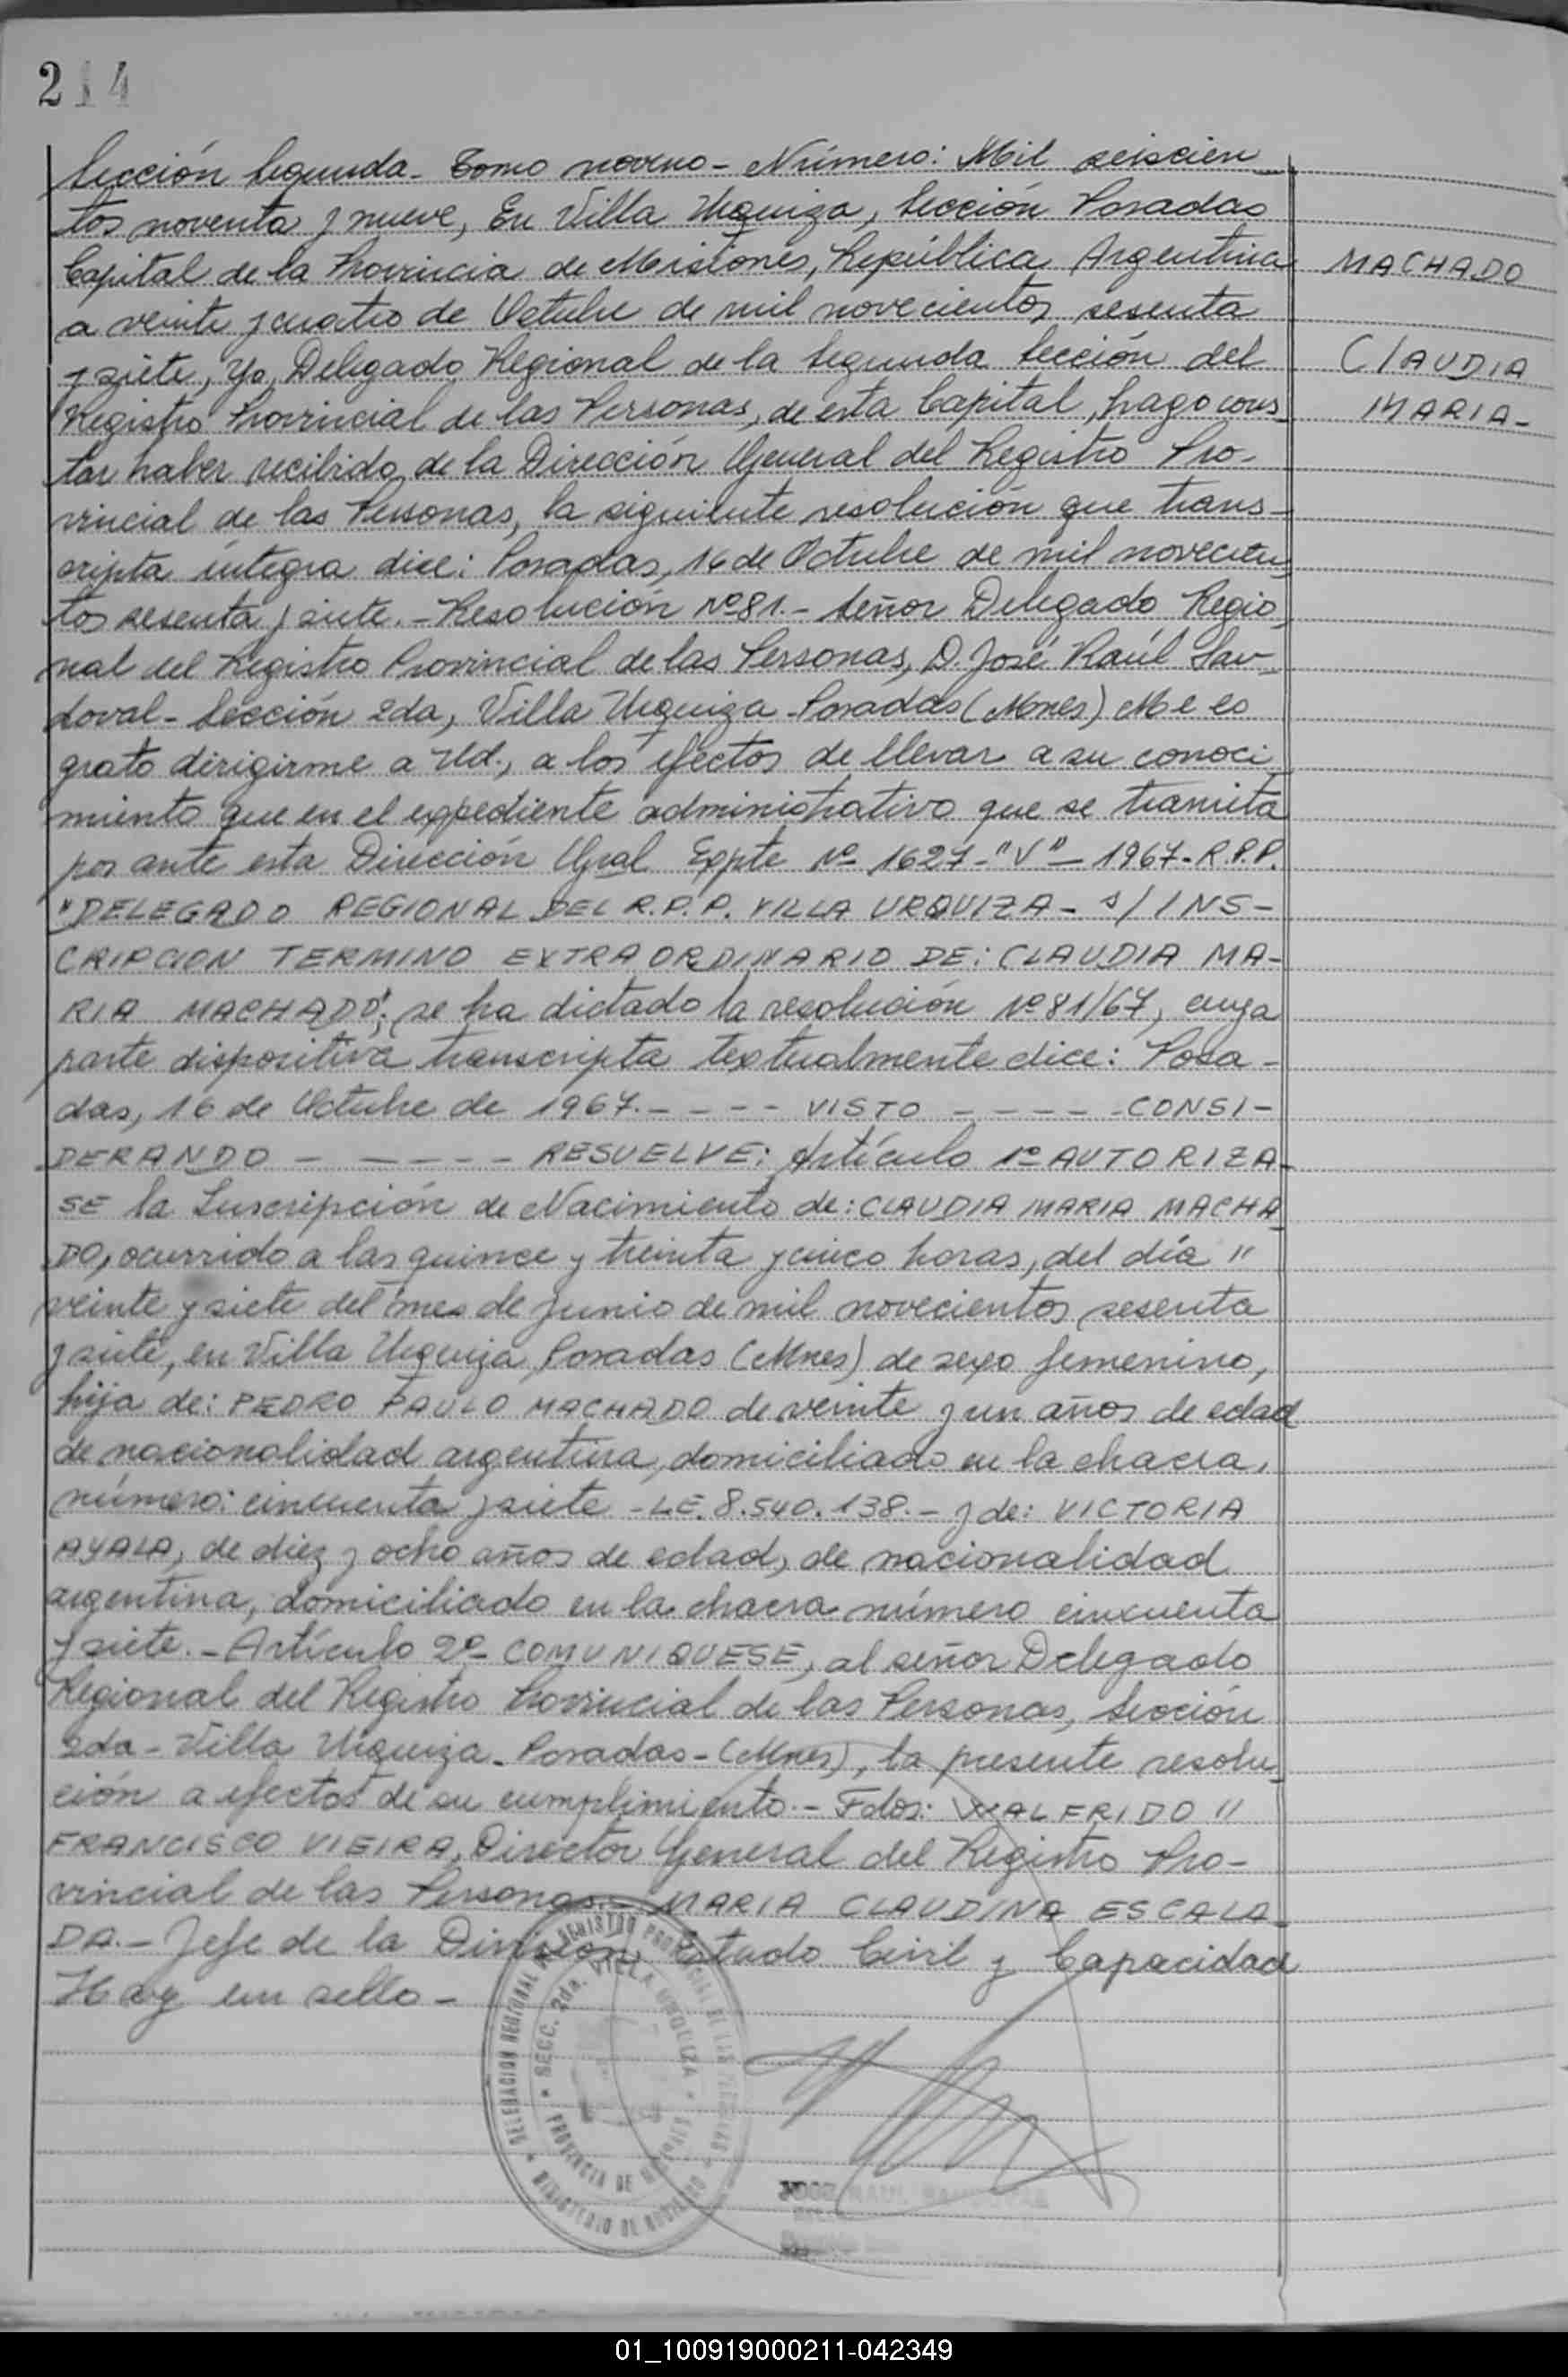 214
Sección Segunda - Tomo noveno - Número: Mil seiscien
tos noventa y nueve, En Villa Urquiza, Sección Posadas
Capital de la Provincia de Misiones, República Argentina
MACHADO
a veinte y cuatro de Octubre de mil novecientos sesenta
y siete, Yo, Delegado Regional de la Segunda Sección del
CLAUDIA
Registro Provincial de las Personas, de esta Capital, hago cons
MARIA-
tar haber recibido de la Dirección General del Registro Pro-
vincial de las Personas, la siguiente resolución que trans-
cripta integra dice: Posadas, 16 de Octubre de mil novecien
tos sesenta y siete.- Resolución Nº 81.- Señor Delegado Regio
nal del Registro Provincial de las Personas, D. José Raúl San
doval - Sección 2da, Villa Urquiza - Posadas (Mnes) Me es
grato dirigirme a Ud., a los efectos de llevar a su conoci
miento que en el expediente administrativo que se tramita
por ante esta Dirección Gral. Expte Nº 1627-"V"- 1967- R.P.P.
"DELEGADO REGIONAL DEL R.P.P. VILLA URQUIZA - s/ INS-
CRIPCION TERMINO EXTRAORDINARIO DE: CLAUDIA MA-
RIA MACHADO"; se ha dictado la resolución Nº 81/67, cuya
parte dispositiva transcripta textualmente dice: Posa-
das, 16 de Octubre de 1967.- - - - VISTO - - - - - CONSI-
DERANDO - - - - - - RESUELVE: Artículo 1º AUTORIZA-
SE la Inscripción de Nacimiento de: CLAUDIA MARIA MACHA
DO, ocurrido a las quince y treinta y cinco horas, del día "
veinte y siete del mes de junio de mil novecientos sesenta
y siete, en Villa Urquiza, Posadas (Mnes) de sexo femenino,
hija de: PEDRO PAULO MACHADO de veinte y un años de edad
de nacionalidad argentina, domiciliado en la chacra,
número: cincuenta y siete - L.E. 8.540.138.- y de: VICTORIA
AYALA, de diez y ocho años de edad, de nacionalidad
argentina, domiciliado en la chacra número cincuenta
y siete.- Artículo 2º COMUNIQUESE, al señor Delegado
Regional del Registro Provincial de las Personas, Sección
2da - Villa Urquiza - Posadas - (Mnes), la presente resolu
ción a efectos de su cumplimiento.- Fdos: WALFRIDO "
FRANCISCO VIEIRA, Director General del Registro Pro-
vincial de las Personas.- MARIA CLAUDINA ESCALA
DA.- Jefe de la División Estado Civil y Capacidad
Hay un sello -
DELEGACION REGIONAL DEL REGISTRO PROVINCIAL DE LAS PERSONAS
SECC. 2da. VILLA URQUIZA
PROVINCIA DE MISIONES
MINISTERIO DE GOBIERNO
JOSE RAUL SANDOVAL
01_100919000211-042349